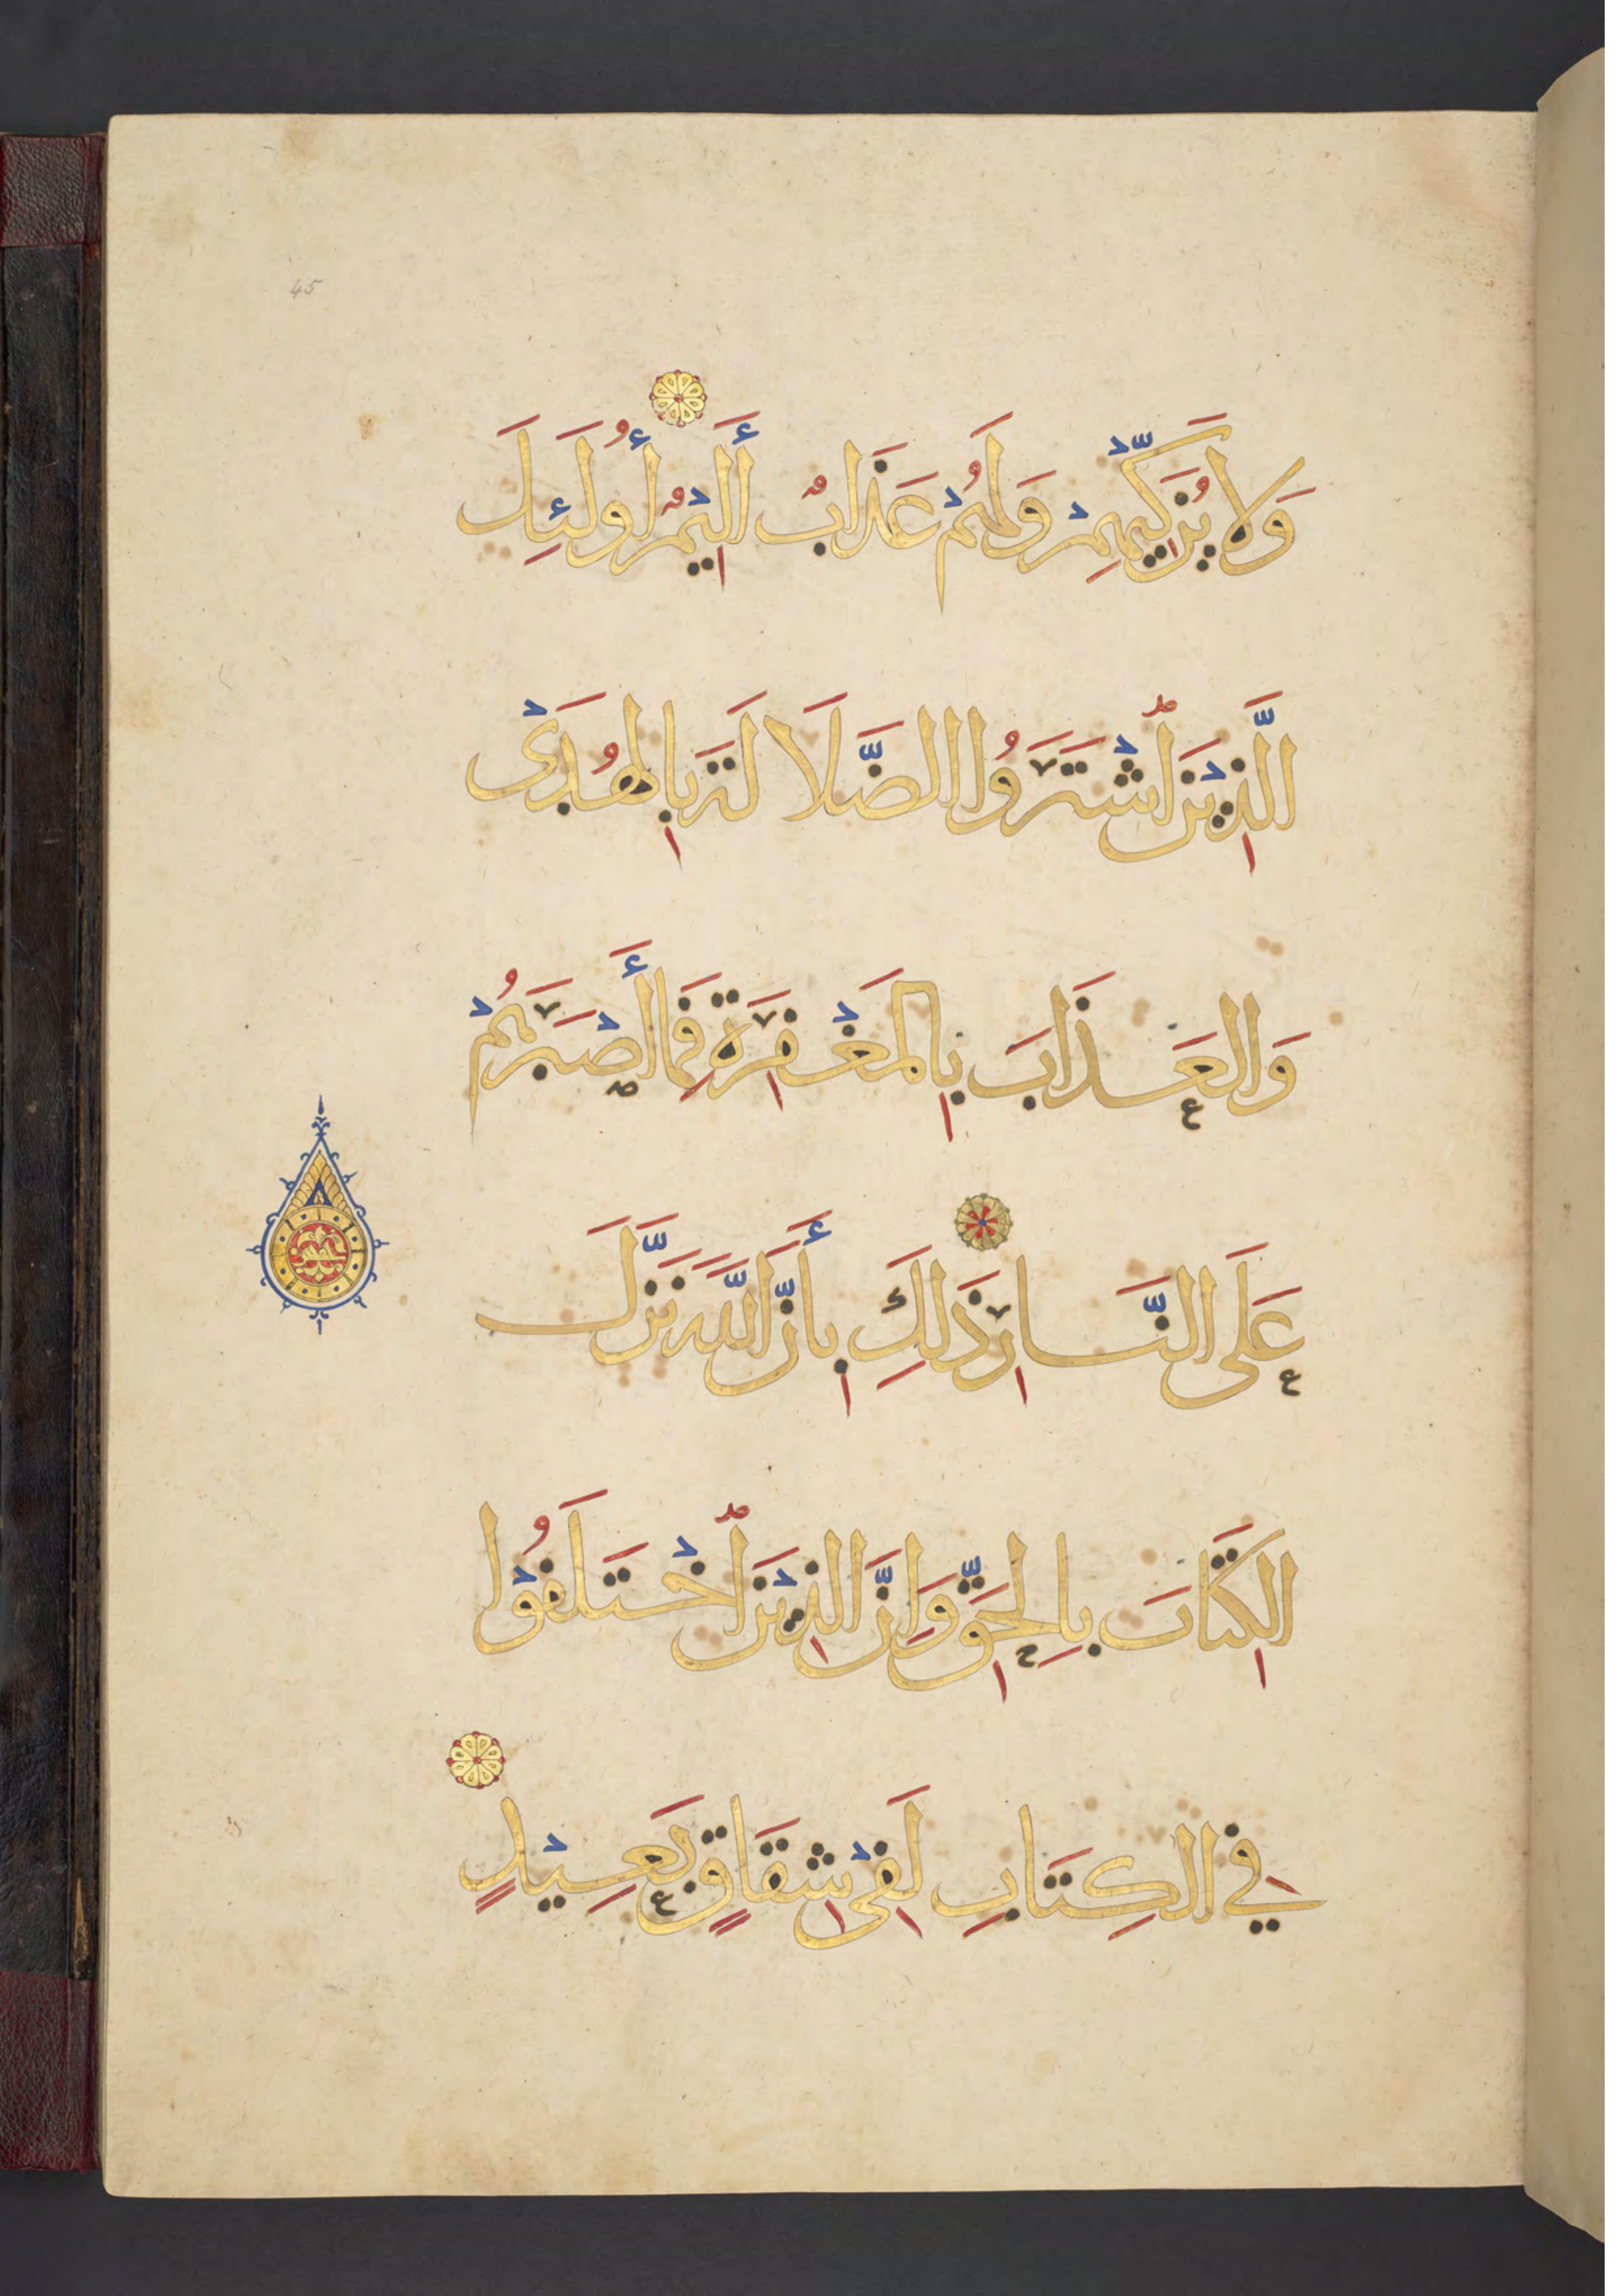 45
وَلَا يُزَكِّيهِمْ وَلَهُمْ عَذَابٌ أَلِيْمٌ أُولَئِكَ
الَّذِيْنَ اشْتَرَوُا الضَّلَالَةَ بِالهُدَىْ
وَالعَذَابَ بِالمَغْفِرَةِ فَمَا أَصْبَرَهُمْ
عَلَى النَّارِ ذَلِكَ بِأَنَّ اللَّهَ نَزَّلَ
الكِتَابَ بِالحَقِّ وَإِنَّ الَّذِيْنَ اخْتَلَفُوْا
فِي الكِتَابِ لَفِيْ شِقَاقٍ بَعِيْدٍ